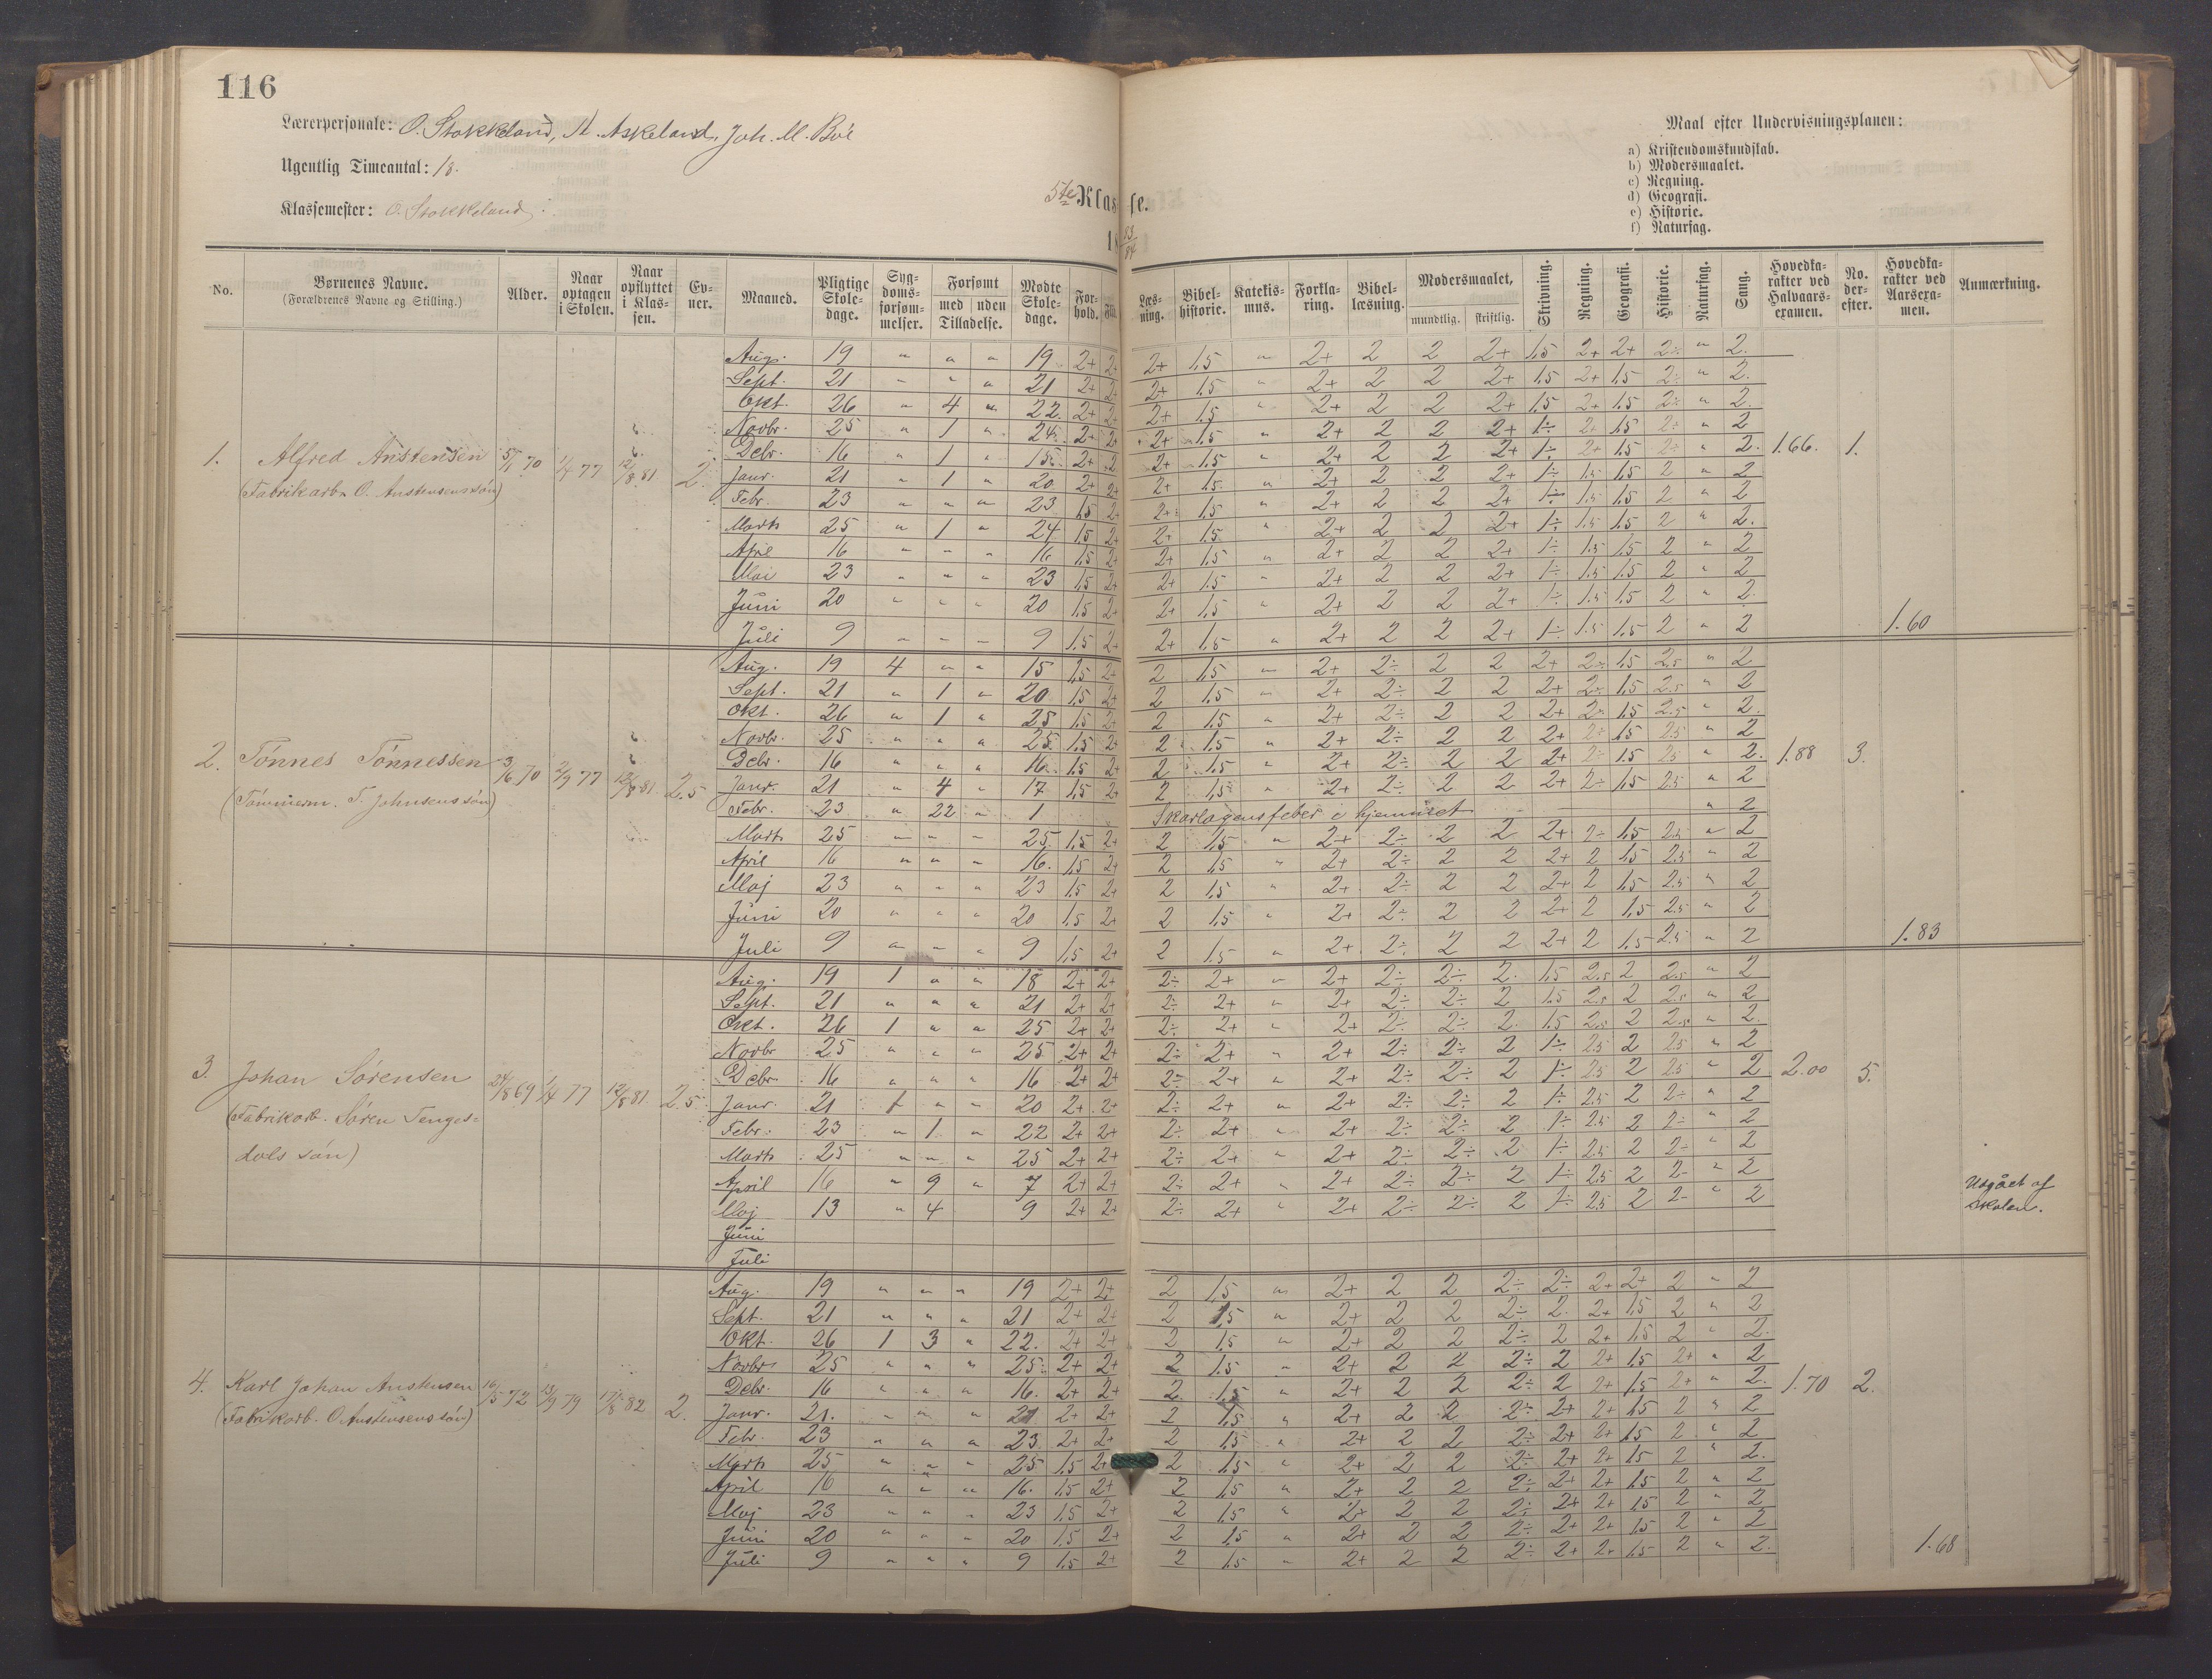 116
Lærerpersonale: O. Stokkeland, N. Askeland, Joh. M. Bøe
Maal efter Undervisningsplanen:
a) Kristendomskundskab.
b) Modersmaalet.
c) Regning.
d) Geografi.
e) Historie.
f) Naturfag.
Ugentlig Timeantal: 18.
Klassemester: O. Stokkeland.
5te Klasse.
18 83/84
No. Børnenes Navne. (Forældrenes Navne og Stilling.) Alder. Naar optagen i Skolen. Naar opflyttet i Klassen. Evner. Maaned. Pligtige Skoledage. Sygdomsforsømmelser. Forsømt med uden Tilladelse. Mødte Skoledage. Forhold. Flid. Læsning. Bibelhistorie. Katekismus. Forklaring. Bibellæsning. Modersmaalet, mundtlig. skriftlig. Skrivning. Regning. Geografi. Historie. Naturfag. Sang. Hovedkarakter ved Halvaarsexamen. No. derefter. Hovedkarakter ved Aarsexamen. Anmærkning.
Aug. 19 " " " 19 2+ 2+ 2+ 1,5 " 2+ 2 2 2+ 1,5 2+ 2+ 2÷ " 2.
Sept. 21 " " " 21 2+ 2+ 2+ 1,5 " 2+ 2 2 2+ 1,5 2+ 1,5 2÷ " 2.
Okt. 26 " 4 " 22. 2+ 2+ 2+ 1,5 " 2+ 2 2 2+ 1,5 2+ 1,5 2÷ " 2.
Novbr. 25 " 1 " 24. 2+ 2+ 2+ 1,5 " 2+ 2 2 2+ 1÷ 2+ 1,5 2÷ " 2
1. Alfred Anstensen 5/1 70 1/4 77 12/8 81 2. Debr. 16 " 1 " 15. 2+ 2 2+ 1,5 " 2+ 2 2 2+ 1÷ 2+ 1,5 2÷ " 2. 1.66. 1.
(Fabrikarb. O. Anstensens søn) Janr. 21 " 1 " 20 2+ 2+ 2+ 1,5 " 2+ 2 2 2+ 1÷ 1,5 1,5 2 " 2
Febr. 23 " " " 23 1,5 2+ 2+ 1,5 " 2+ 2 2 2+ 1÷ 1,5 1,5 2 " 2
Marts 25 " 1 " 24. 1,5 2+ 2+ 1,5 " 2+ 2 2 2+ 1÷ 1,5 1,5 2 " 2.
April 16 " " " 16 1,5 2+ 2+ 1,5 " 2+ 2 2 2+ 1÷ 1,5 1,5 2 " 2
Mai 23 " " " 23 1,5 2+ 2+ 1,5 " 2+ 2 2 2+ 1÷ 1,5 1,5 2 " 2
Juni 20 " " " 20 1,5 2+ 2+ 1,5 " 2+ 2 2 2+ 1÷ 1,5 1,5 2 " 2.
Juli 9 " " " 9 1,5 2+ 2+ 1,5 " 2+ 2 2 2+ 1÷ 1,5 1,5 2 " 2 1.60
Aug. 19 4 " " 15 1,5 2+ 2 1,5 " 2+ 2÷ 2 2 2+ 2÷ 1,5 2,5 " 2
Sept. 21 " 1 " 20 1,5 2+ 2 1,5 " 2+ 2÷ 2 2 2+ 2÷ 1,5 2.5 " 2
Okt. 26 " 1 " 25 1,5 2+ 2 1,5 " 2+ 2÷ 2 2 2+ 2÷ 1,5 2.5 " 2.
Novbr. 25 " " " 25. 1,5 2+ 2 1,5 " 2+ 2÷ 2 2 2+ 2÷ 1,5 2.5 " 2
2. Tønnes Tønnessen 3/6 70 2/9 77 12/8 81. 2.5 Debr. 16 " " " 16. 1,5 2+ 2 1,5 " 2+ 2÷ 2 2 2+ 2÷ 1.5 2.5 " 2. 1.88 3.
(Tømmerm. T. Johnsens søn) Janr. 21 " 4 " 17 1,5 2+ 2 1,5 " 2+ 2÷ 2 2 2+ 2÷ 1,5 2.5 " 2
Febr. 23 " 22 " 1 Skarlagensfeber i hjemmet " 2
Marts 25 " " " 25. 1,5 2+ 2 1,5 " 2+ 2÷ 2 2 2+ 2÷ 1,5 2.5 " 2
April 16 " " " 16. 1,5 2+ 2 1,5 " 2+ 2÷ 2 2 2+ 2 1,5 2.5 " 2
Maj 23 " " " 23 1,5 2+ 2 1,5 " 2+ 2÷ 2 2 2+ 2 1,5 2.5 " 2
Juni 20 " " " 20 1,5 2+ 2 1,5 " 2+ 2÷ 2 2 2+ 2 1,5 2.5 " 2
Juli 9 " " " 9 1,5 2+ 2 1,5 " 2+ 2÷ 2 2 2+ 2 1,5 2.5 " 2 1.83
Aug. 19 1 " " 18 2+ 2+ 2÷ 2+ " 2+ 2÷ 2÷ 2. 1,5 2.5 2 2.5 " 2
Sept. 21 " " " 21 2+ 2+ 2÷ 2+ " 2+ 2÷ 2÷ 2 1,5 2.5 2 2.5 " 2
Okt. 26 1 " " 25 2+ 2+ 2÷ 2+ " 2+ 2÷ 2÷ 2. 1,5 2.5 2 2.5 " 2.
Novbr 25 " " " 25 2+ 2+ 2÷ 2+ " 2+ 2÷ 2÷ 2 1÷ 2.5 2 2.5 " 2
3. Johan Sørensen 24/8 69 1/4 77 12/8 81. 2.5 Debr. 16 " " " 16 2+ 2+ 2÷ 2+ " 2+ 2÷ 2÷ 2 1÷ 2.5 2 2.5 " 2 2.00 5.
(Fabrikarb. Søren Tenges- Janr. 21 1 " " 20 2+ 2+ 2÷ 2+ " 2+ 2÷ 2÷ 2 1÷ 2.5 2 2÷ " 2
Febr. 23 " 1 " 22 2+ 2+ 2÷ 2+ " 2+ 2÷ 2÷ 2 1÷ 2.5 2 2÷ " 2
dals søn) Marts 25 " " " 25 2+ 2+ 2÷ 2+ " 2+ 2÷ 2÷ 2 1÷ 2.5 2 2÷ " 2
April 16 " 9 " 7 2+ 2+ 2÷ 2+ " 2+ 2÷ 2÷ 2 1÷ 2.5 2 2- " 2 Udgået af
Maj 13 " 4 9 2+ 2+ 2÷ 2+ " 2+ 2÷ 2÷ 2 1÷ 2.5 2 2- " 2 skolen.
Juni
Juli
Aug. 19 " " " 19 2+ 2+ 2 1,5 " 2+ 2 2 2÷ 2÷ 2+ 2+ 2 " 2
Sept. 21 " " " 21 2+ 2+ 2 1,5 " 2+ 2 2 2÷ 2. 2+ 1,5 2 " 2
Okt. 26 1 3 " 22. 2+ 2+ 2 1,5 " 2+ 2 2 2÷ 2 2+ 1,5 2 " 2.
Novbr. 25 " " " 25. 2+ 2+ 2 1,5 " 2+ 2 2 2÷ 2 2+ 1,5 2+ " 2
4. Karl Johan Anstensen 16/5 72 13/9 79 17/8 82 2. Debr. 16 " " " 16. 2+ 2+ 2 1,5 " 2+ 2 2 2÷ 2 2+ 1,5 2+ " 2. 1.70 2.
(Fabrikarb. O. Anstensens søn) Janr. 21. " " " 21 2+ 2+ 2 1,5 " 2+ 2 2 2÷ 2+ 2+ 1,5 2 " 2
Febr. 23 " " " 23 2+ 2+ 2 1,5 " 2+ 2 2 2÷ 2+ 2+ 1,5 2 " 2
Marts 25 " " " 25 1,5 2+ 2 1,5 " 2+ 2 2 2÷ 2+ 2+ 1,5 2 " 2.
April 16 " " " 16. 1,5 2+ 2 1,5 " 2+ 2 2 2÷ 2+ 2+ 1,5 2 " 2
Maj 23 " " " 23 1,5 2+ 2 1,5 " 2+ 2 2 2÷ 2+ 2+ 1,5 2 " 2
Juni 20 " " " 20 1,5 2+ 2 1,5 " 2+ 2 2 2÷ 2+ 2+ 1,5 2 " 2
Juli 9 " " " 9 1,5 2+ 2 1,5 " 2+ 2 2 2÷ 2+ 2+ 1,5 2 " 2. 1.68